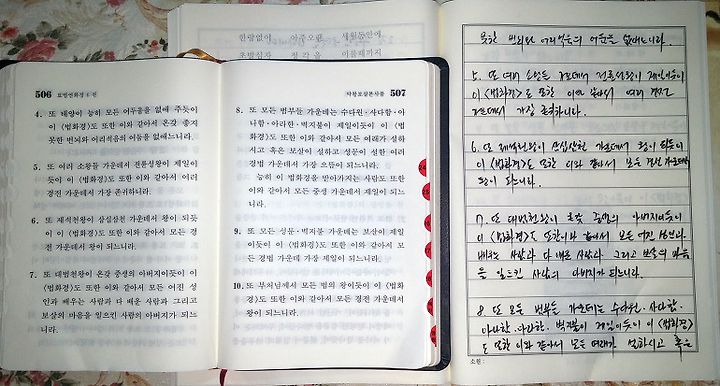 한량없이 아주오랜 세월동안에
초발심자 정각을 이룰때까지
506 묘법연화경 6 권
4. 또 태양이 능히 모든 어두움을 없애 주듯이
이 《법화경》도 또한 이와 같아서 온갖 좋지
못한 번뇌와 어리석음의 어둠을 없애느니라.
5. 또 여러 소왕들 가운데서 전륜성왕이 제일이듯
이 이 《법화경》도 또한 이와 같아서 여러
경전 가운데서 가장 존귀하니라.
6. 또 제석천왕이 삼십삼천 가운데서 왕이 되듯
이 이 《법화경》도 또한 이와 같아서 모든 경
전 가운데서 왕이 되느니라.
7. 또 대범천왕이 온갖 중생의 아버지이듯이 이
《법화경》도 또한 이와 같아서 모든 어진 성
인과 배우는 사람과 다 배운 사람과 그리고
보살의 마음을 일으킨 사람의 아버지가 되느
니라.
약왕보살본사품 507
8. 또 모든 범부들 가운데는 수다원·사다함·아
나함·아라한·벽지불이 제일이듯이 이 《법
화경》도 또한 이와 같아서 모든 여래가 설하
시고 혹은 보살이 설하고 성문이 설한 여러
경법 가운데서 가장 으뜸이 되느니라.
능히 이 법화경을 받아가지는 사람도 또한
이와 같아서 모든 중생 가운데서 제일이 되느
니라.
9. 또 모든 성문·벽지불 가운데는 보살이 제일
이듯이 이 《법화경》도 또한 이와 같아서 모
든 경법 가운데 가장 제일이 되느니라.
10. 또 부처님께서 모든 법의 왕이듯이 이 《법화
경》도 또한 이와 같아서 모든 경전 가운데서
왕이 되느니라.
못한 번뇌와 어리석음의 어둠을 없애느니라.
5. 또 여러 소왕들 가운데서 전륜성왕이 제일이듯이
이 《법화경》도 또한 이와 같아서 여러 경전
가운데서 가장 존귀하니라.
6. 또 제석천왕이 삼십삼천 가운데서 왕이 되듯이
이 《법화경》도 또한 이와 같아서 모든 경전 가운데서
왕이 되느니라.
7. 또 대범천왕이 온갖 중생의 아버지이듯이
이 《법화경》도 또한 이와 같아서 모든 어진 성인과
배우는 사람과 다 배운 사람과 그리고 보살의 마음
을 일으킨 사람의 아버지가 되느니라.
8. 또 모든 범부들 가운데는 수다원. 사다함.
아나함. 아라한. 벽지불이 제일이듯이 이 《법화경》
도 또한 이와 같아서 모든 여래가 설하시고 혹은
소원: